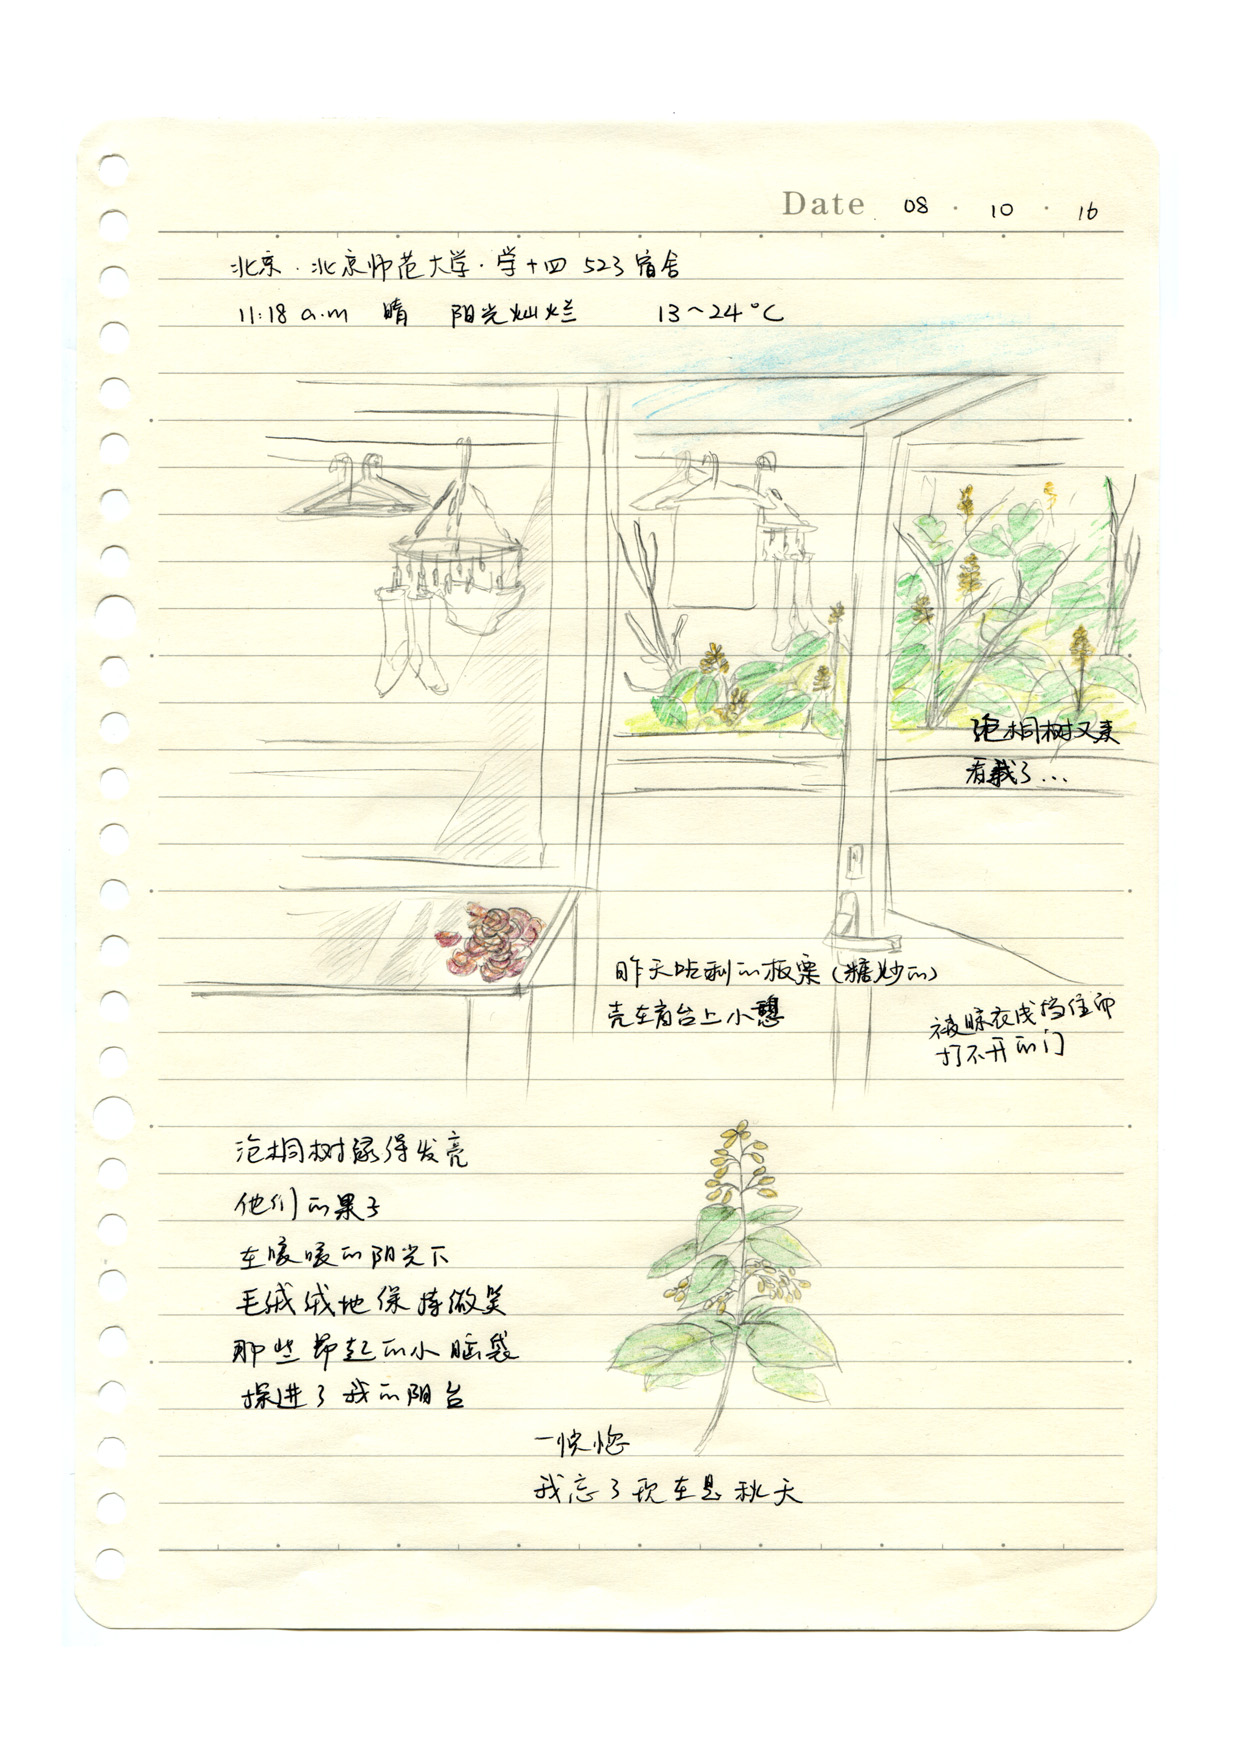 Date 08 · 10 · 16
北京·北京师范大学·学十四 523 宿舍
11:18 a.m 晴 阳光灿烂 13~24°C
泡桐树又来
看我了...
昨天吃剩的板栗(糖炒的)
壳在窗台上小憩
被晾衣戌挡住而
打不开的门
泡桐树绿得发亮
他们的果子
在暖暖的阳光下
毛绒绒地保持微笑
那些昂起的小脑袋
探进了我的阳台
一恍惚
我忘了现在是秋天